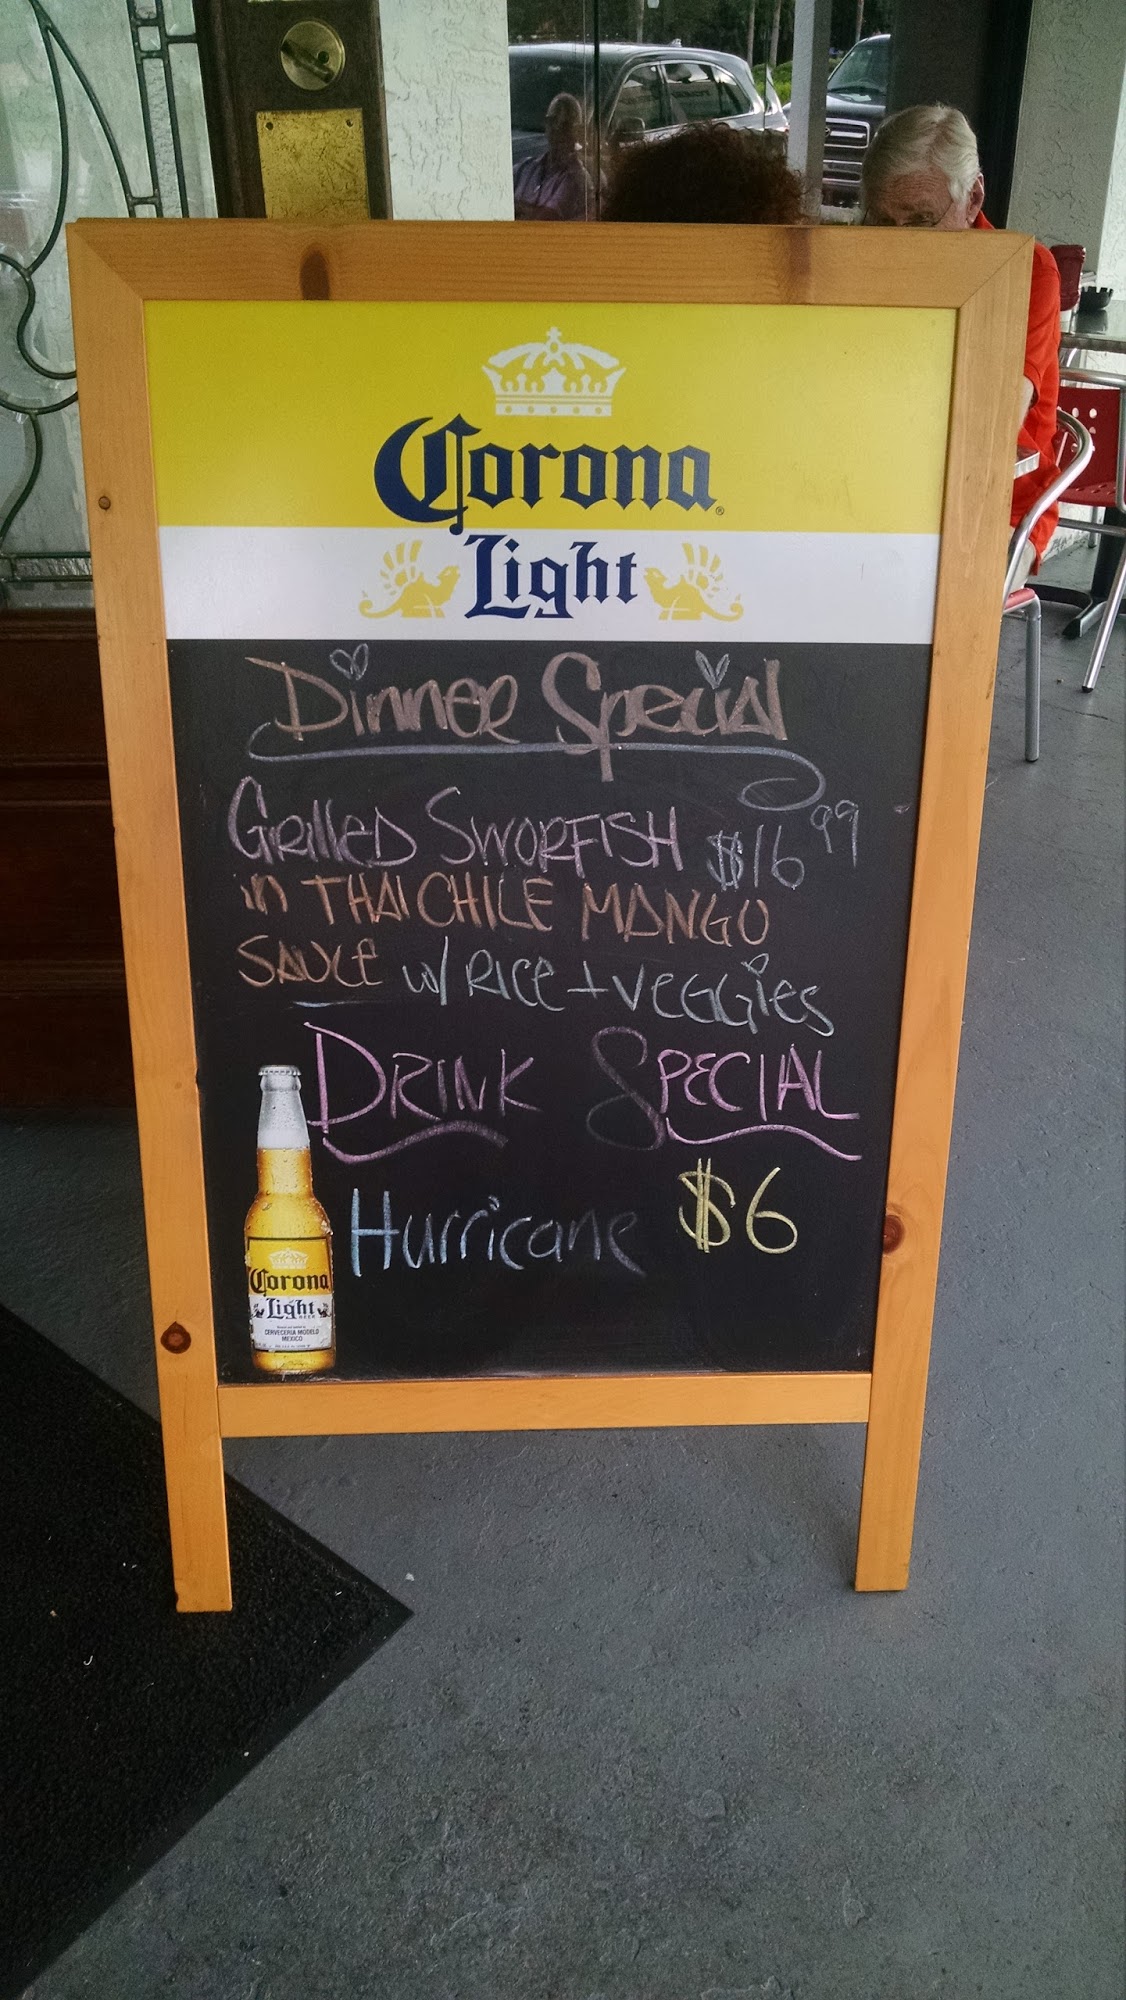 Corona
Light
Dinner Special
Grilled Sworfish $16 99
in Thai Chile Mango
Sauce w/ Rice + Veggies
Drink Special
Hurricane $6
Corona
Light
CERVECERIA MODELO
MEXICO